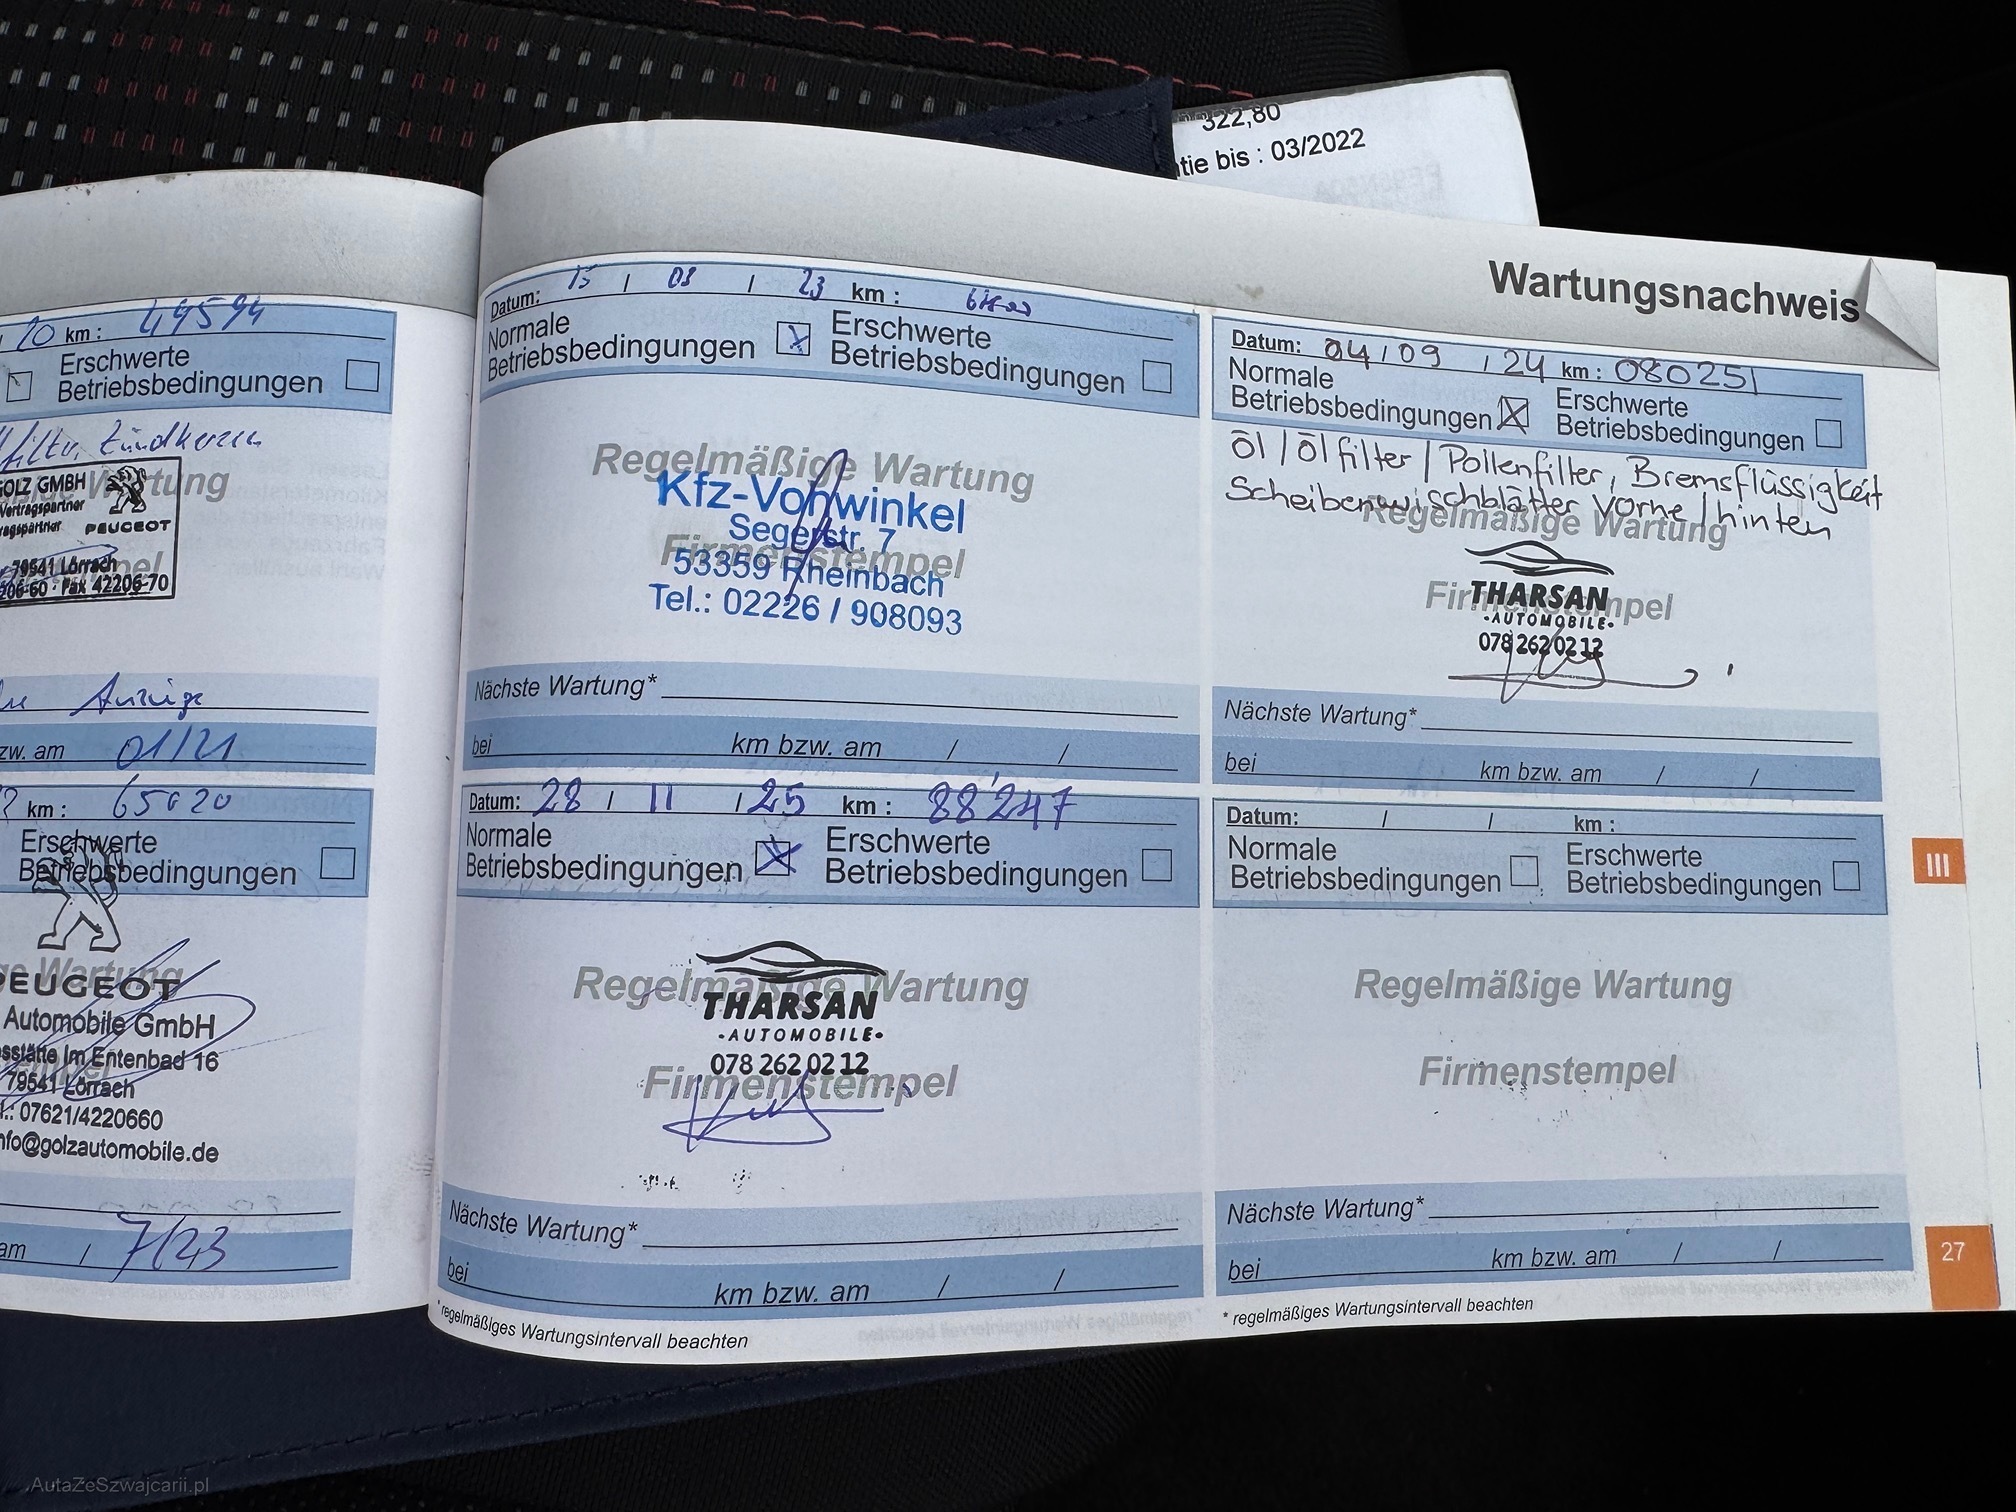 322,80
tie bis : 03/2022
Wartungsnachweis
20 km : 49594
Erschwerte
Betriebsbedingungen
filter, Zündkerzen
GOLZ GMBH
Vertragspartner
ragspartner PEUGEOT
79541 Lörrach
206-60 · Fax 42206-70
Anzeige
zw. am 01/21
km : 65020
Erschwerte
Betriebsbedingungen
ge Wartung
PEUGEOT
Automobile GmbH
sstätte Im Entenbad 16
79541 Lörrach
l.: 07621/4220660
nfo@golzautomobile.de
am / 7/23
Datum: 15 / 08 / 23 km :
Normale
Betriebsbedingungen
Erschwerte
Betriebsbedingungen
Regelmäßige Wartung
Kfz-Vohwinkel
Segerstr. 7
Firmenstempel
53359 Rheinbach
Tel.: 02226 / 908093
Nächste Wartung*
bei km bzw. am / /
Datum: 28 / 11 / 25 km : 88'247
Normale
Betriebsbedingungen
Erschwerte
Betriebsbedingungen
Regelmäßige Wartung
THARSAN
-AUTOMOBILE-
078 262 02 12
Firmenstempel
Nächste Wartung*
bei km bzw. am / /
* regelmäßiges Wartungsintervall beachten
Datum: 04 / 09 / 24 km : 080251
Normale
Betriebsbedingungen
Erschwerte
Betriebsbedingungen
Öl / Ölfilter / Pollenfilter, Bremsflüssigkeit
Scheibenwischblätter Vorne / hinten
Regelmäßige Wartung
Firmenstempel
THARSAN
-AUTOMOBILE-
078 262 02 12
Nächste Wartung*
bei km bzw. am / /
Datum: / / km :
Normale
Betriebsbedingungen
Erschwerte
Betriebsbedingungen
Regelmäßige Wartung
Firmenstempel
Nächste Wartung*
bei km bzw. am / /
* regelmäßiges Wartungsintervall beachten
III
27
AutaZeSzwajcarii.pl